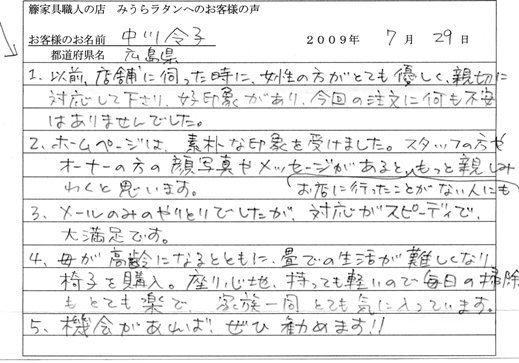 籐家具職人の店　みうらラタンへのお客様の声
お客様のお名前　中川令子　2009年　7月　29日
都道府県名　広島県
1. 以前、店舗に伺った時に、女性の方がとても優しく、親切に
対応して下さり、好印象があり、今回の注文に何も不安
はありませんでした。
2. ホームページは、素朴な印象を受けました。スタッフの方や
オーナーの方の顔写真やメッセージがあると、もっと親しみ
わくと思います。
お店に行ったことがない人にも
3. メールのみのやりとりでしたが、対応がスピーディで、
大満足です。
4. 母が高齢になるとともに、畳での生活が難しくなり、
椅子を購入。座り心地、持っても軽いので毎日の掃除
もとても楽で、家族一同とても気に入っています。
5. 機会があれば、ぜひ勧めます!!